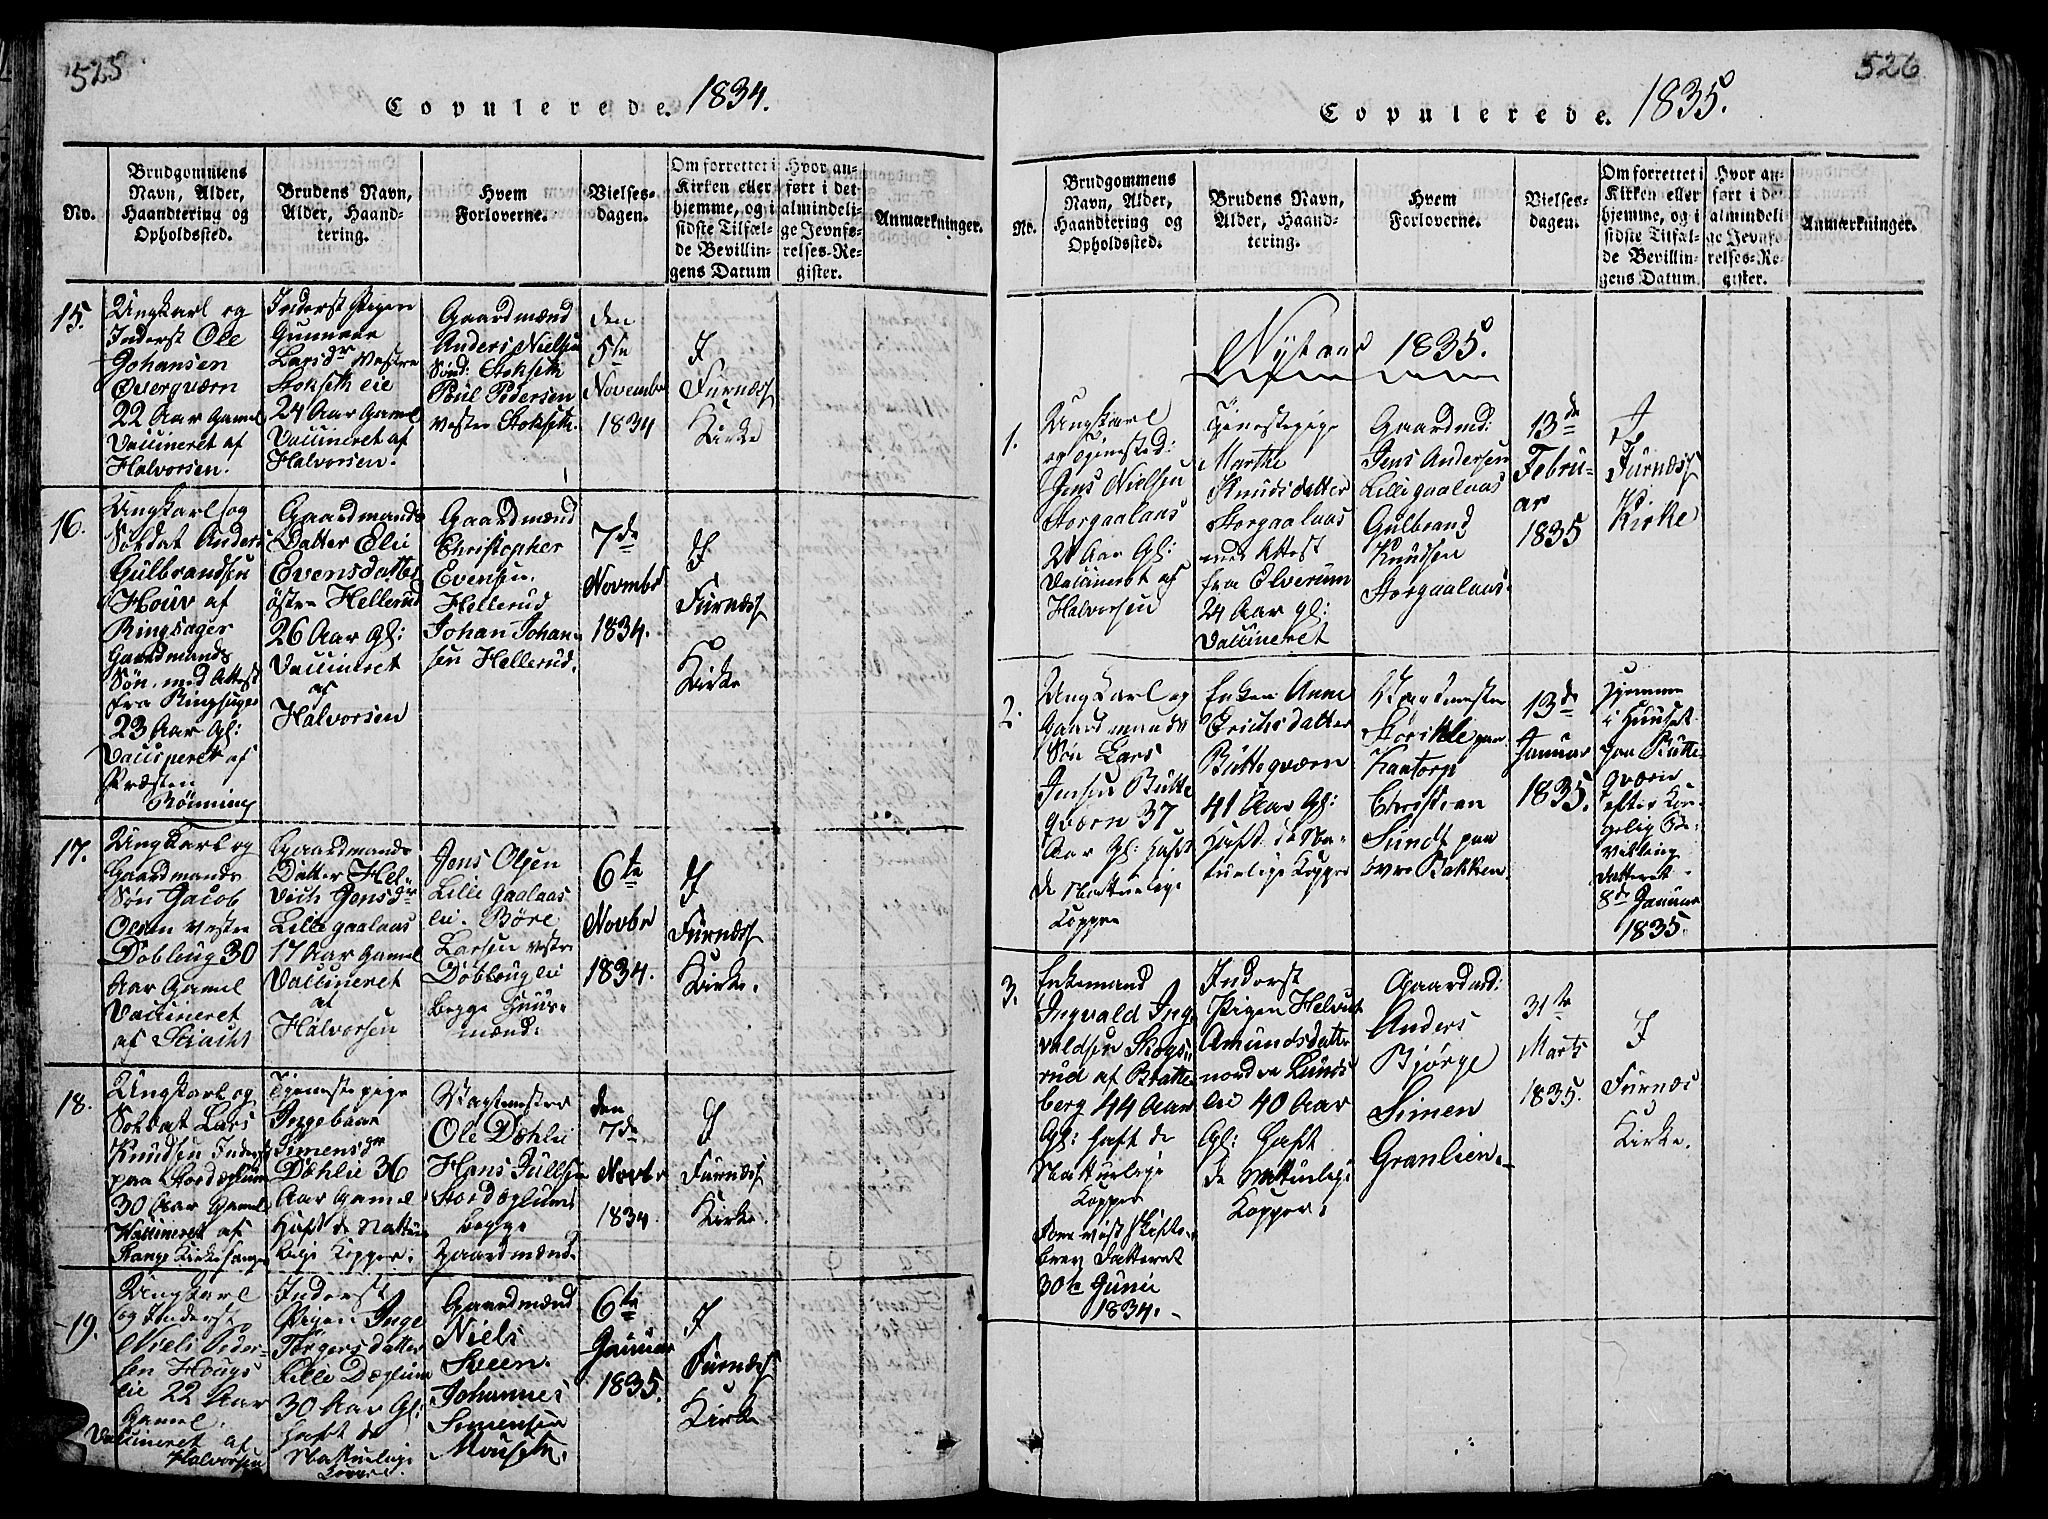 525
Copulerede. 1834.
No.
Brudgommens
Navn, Alder,
Haandtering og
Opholdssted.
Brudens Navn,
Alder, Haand-
tering.
Hvem
Forloverne.
Vielses-
dagen.
Om forrettet i
Kirken eller
hjemme, og i
sidste Tilfæl-
de Bevillin-
gens Datum
Hvor an-
ført i det
almindeli-
ge Jevnfø-
relses-Re-
gister.
Anmærkninger.
15.
Ungkarl og
Inderst Ole
Johansen
Overqværn
22 Aar Gamel
Vaccineret af
Halvorsen.
Inderst Pigen
Larsdr Vestre
Stokseth eie
24 Aar Gamel
Vaccineret af
Halvorsen.
Gaardmænd
Anders Nielsen
Sönd: Stokseth
Poul Pedersen
Vestre Stokseth.
den
5te
November
1834
I
Furnæss
Kirke
16.
Ungkarl og
Soldat Anders
Gulbrandsen
Houv af
Ringsager
Gaardmands
Søn, med Attest
fra Ringsager
23 Aar Gl:
af
Præsten
Rönning
Gaardmands
Datter Elie
Evensdatter
östre Hellerud
26 Aar Gl:
Vaccineret
af
Halvorsen
Gaardmænd
Christopher
Evensen
Hellerud
Johan Johan-
sen Hellerud.
7de
Novmbr
1834.
I
Furnæss
Kirke
17.
Ungkarl og
Gaardmands
Søn Jacob
Olsen Vestre
Döbloug 30
Aar Gamel
Vaccineret
af
Gaardmands
Datter Hel-
vich Jensdr
Lille gaalaas
17 Aar Gamel
Vaccineret
af
Halvorsen
Jens Olsen
Lille Gaalaas
eie. Böre
Larsen Vestre
Döbloug eie
begge Huus-
mænd.
6te
Novbr
1834.
I
Furnæss
Kirke.
18.
Ungkarl og
Soldat Lars
Knudsen Inderst
paa Stordæhlum
30 Aar Gamel
Vaccineret af
Kirkesanger
Tjeneste pige
Ingebaar
Simensdr
Dæhlie 36
Aar Gamel
Haft de Nattur-
lige Kopper.
Vagtmester
Ole Dæhlie
Hans Jullsen
begge
Gaardmænd.
den
7de
Novbr
1834.
I
Furnæss
Kirke.
19.
Ungkarl
og Inderst
Niels Peder-
sen Hougs
eie 22 Aar
Gamel,
Vaccineret af
Halvorsen
Inderst
Pigen Inge
Torgersdatter
Lille Dæglum
30 Aar Gl:
haft de
Natturlige
Kopper.
Gaardmænd
Niels
Sveen.
Johannes
Simensen
Mouseth.
6te
Januar
1835.
I
Furnæss
Kirke
526
Copulerede. 1835.
No.
Brudgommens
Navn, Alder,
Haandtering og
Opholdssted.
Brudens Navn,
Alder, Haand-
tering.
Hvem
Forloverne.
Vielses-
dagen.
Om forrettet i
Kirken eller
hjemme, og i
sidste Tilfæl-
de Bevillin-
gens Datum
Hvor an-
ført i det
almindeli-
ge Jevnfø-
relses-Re-
gister.
Anmærkninger.
Nyt aar 1835.
1.
Ungkarl
og Tjenested:
Jens Nielsen
Storgaalaas
21 Aar Gl:
Vaccineret af
Halvorsen
Tjenestepige
Marthe
Knudsdatter
Storgaalaas
med Attest
fra Elverum
24 Aar gl:
Vaccineret
Gaardmd:
Jens Andersen
Lille gaalaas
Gulbrand
Knudsen
Storgaalaas.
13de
Febru-
ar
1835
I
Furnæss
Kirke
2.
Ungkarl og
Gaardmands
Søn Lars
Jensen Butte
qværn 37
Aar Gl: haft
de Natturlige
Kopper
Enken Anne
Erichsdatter
Butteqværn
41 Aar Gl:
Haft de Na-
turlige Kopper
paa
Kaatorp
Christian
Sundt paa
övre Bakken
13de
Januar
1835.
Hjemme
i Huuset
paa Butte
qværn
efter Kon-
gelig Be-
villing
datteret
8de Januar
1835.
3.
Enkemand
Ingvald Ing-
valdsen Skogs-
rud af Bratte
berg 44 Aar
Gl: haft de
Natturlige
Kopper
Foreviist Skifte-
brev datteret
30te Junii
1834.
Inderst
Pigen Helvich
Amundsdatter
nordre Lunds
eie 40 Aar
Gl: haft
de Natturlige
Kopper.
Gaardmd:
Anders
Bjørge
Simen
Granlien.
31te
Marts
1835.
I
Furnæs
Kirke.